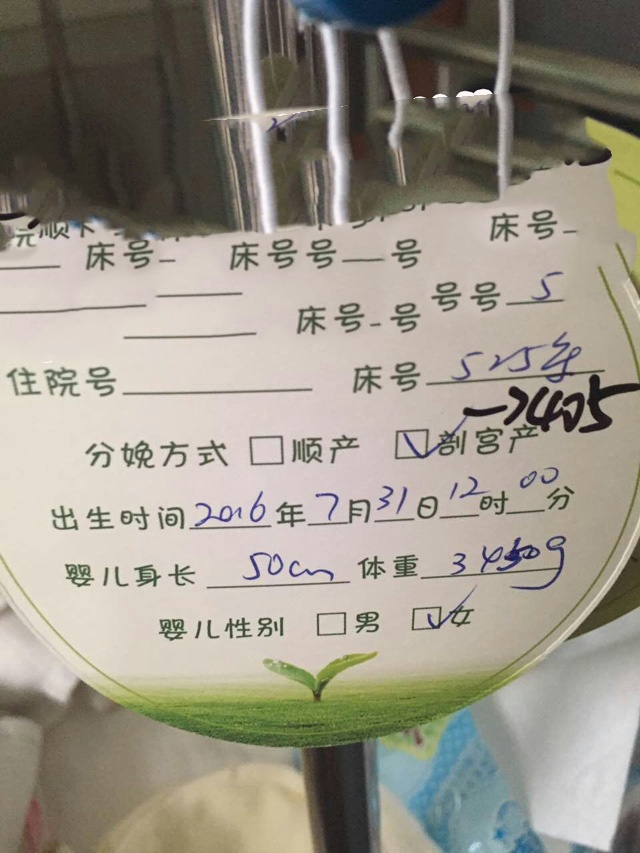 床号
床号 床号号 号
床号 号 号号 5
住院号 床号 525
→405
分娩方式 □顺产 ☑剖宫产
出生时间 2016 年 7 月 31 日 12 时 00 分
婴儿身长 50cm 体重 3450g
婴儿性别 □男 ☑女